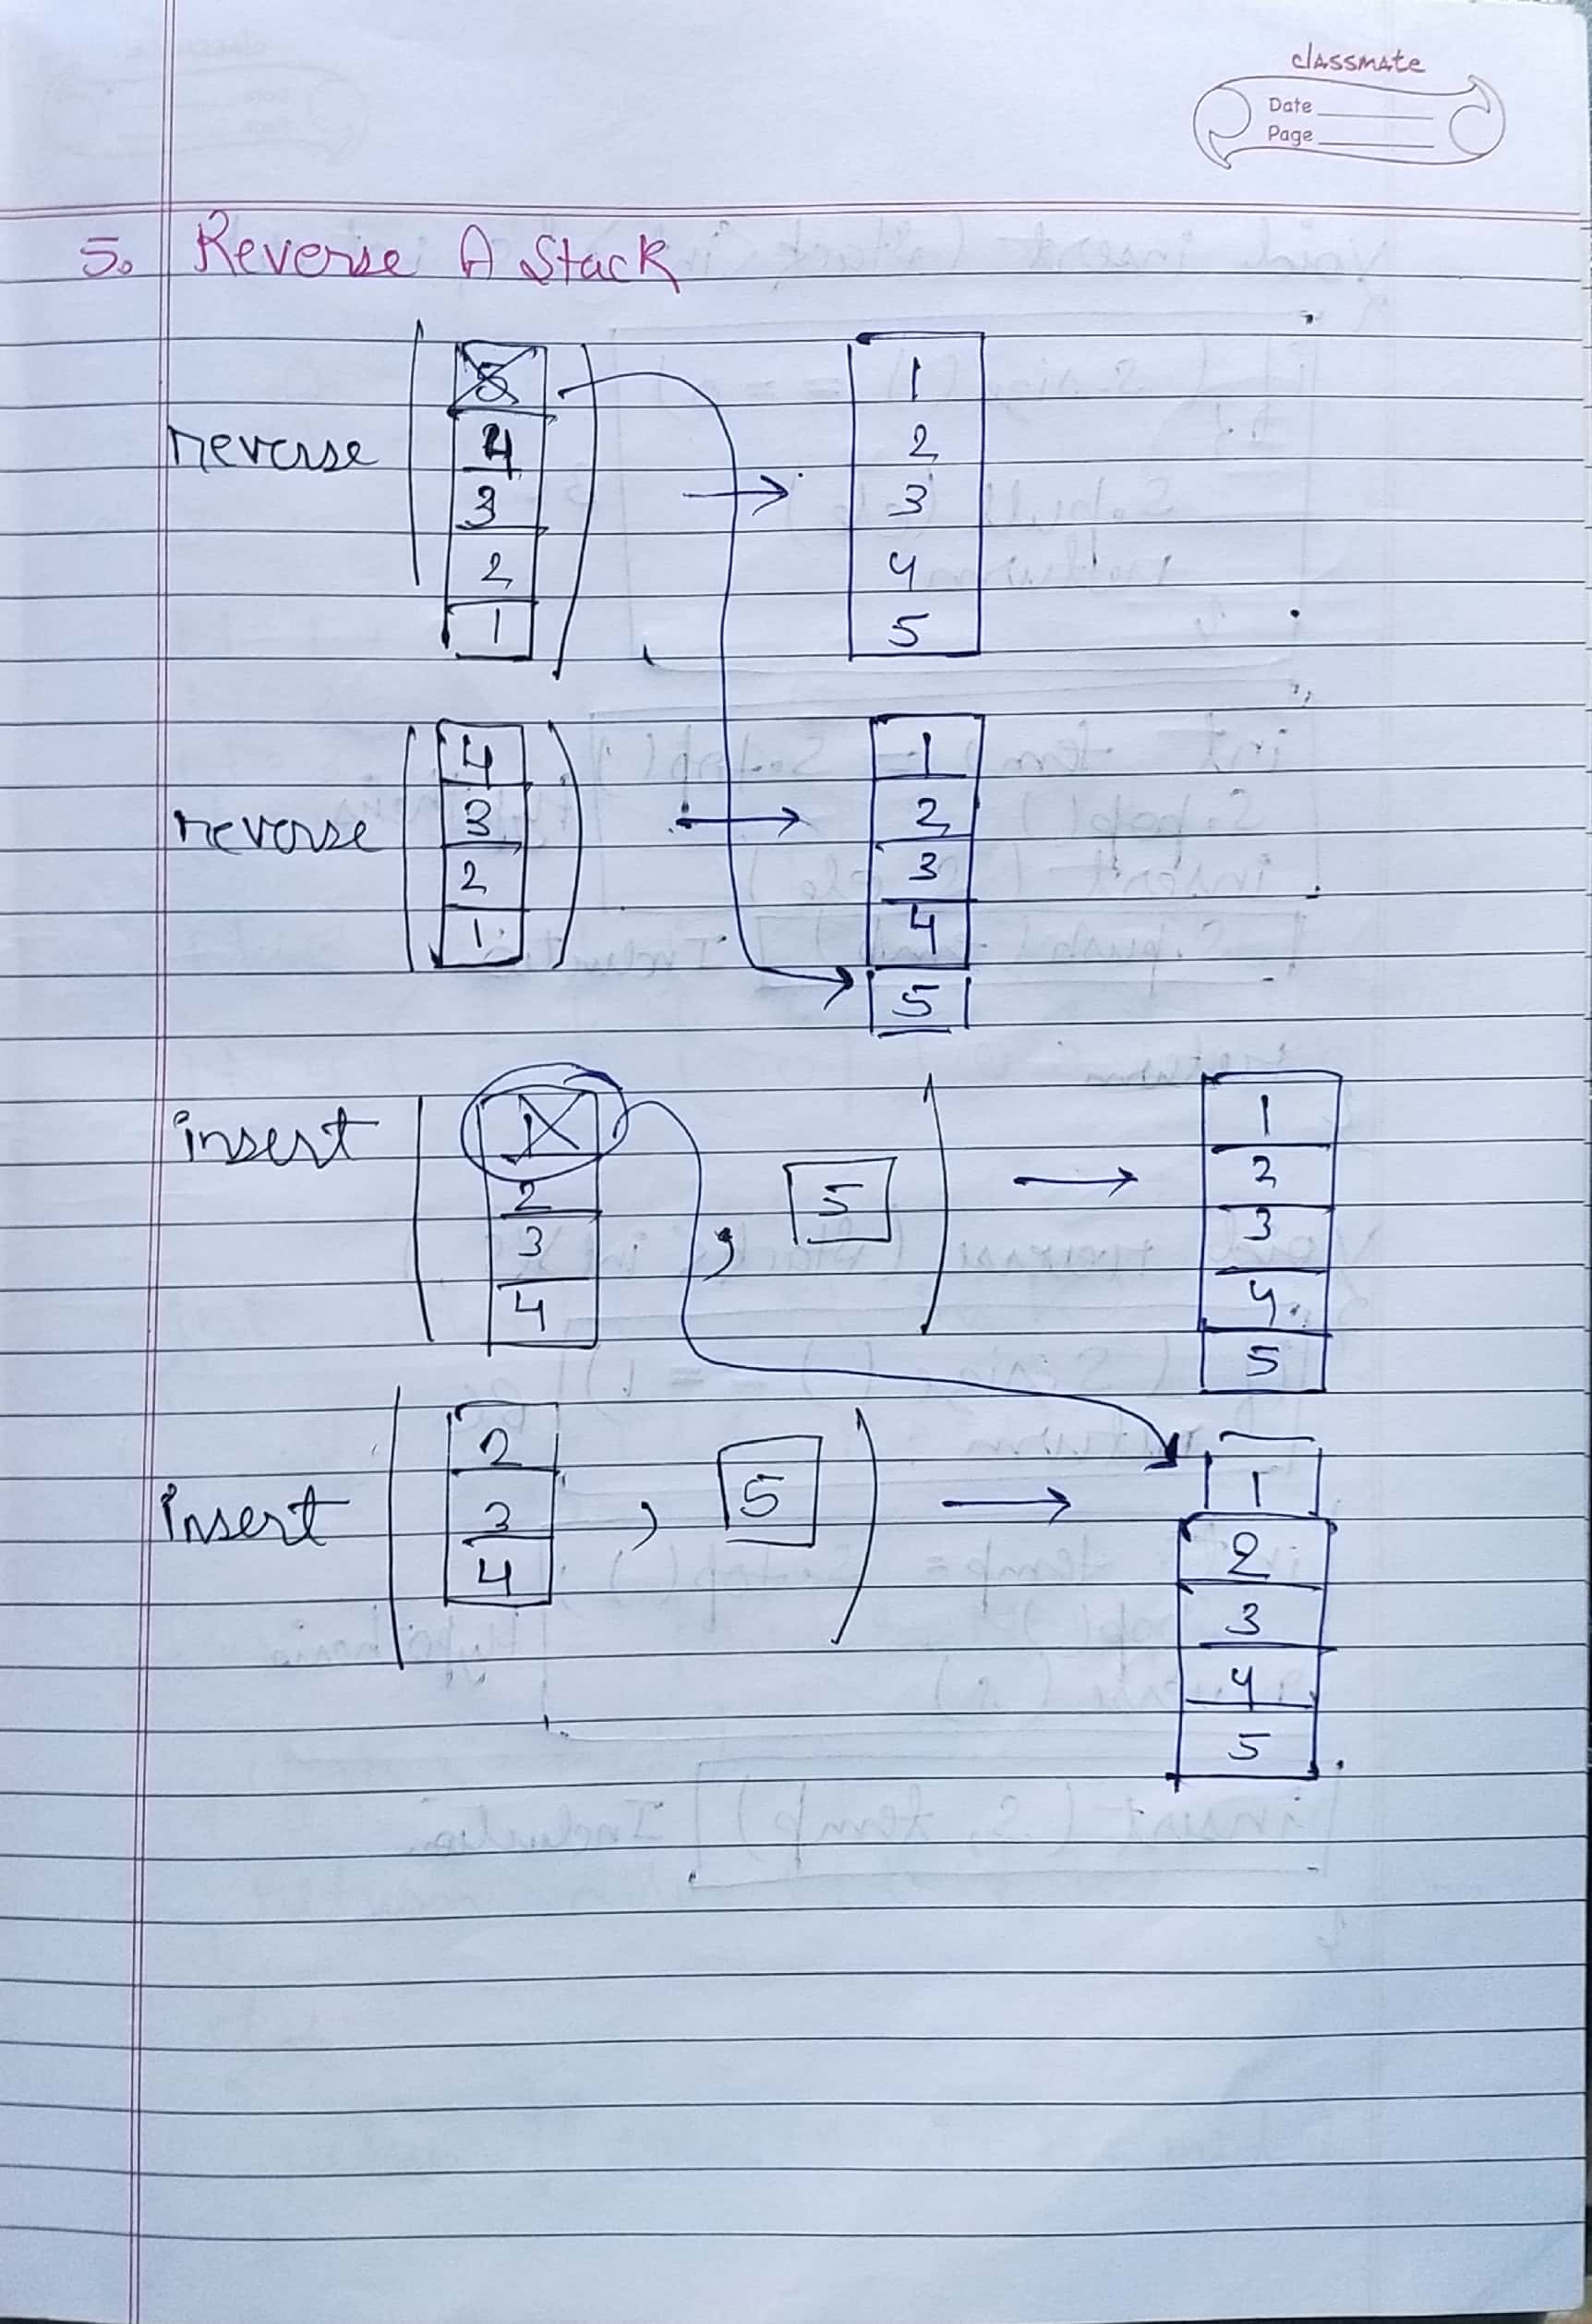 classmate
Date
Page
5. Reverse A Stack
reverse
5
4
3
2
1
1
2
3
4
5
reverse
4
3
2
1
1
2
3
4
5
insert
1
2
3
4
,
5
1
2
3
4
5
Insert
2
3
4
,
5
1
2
3
4
5